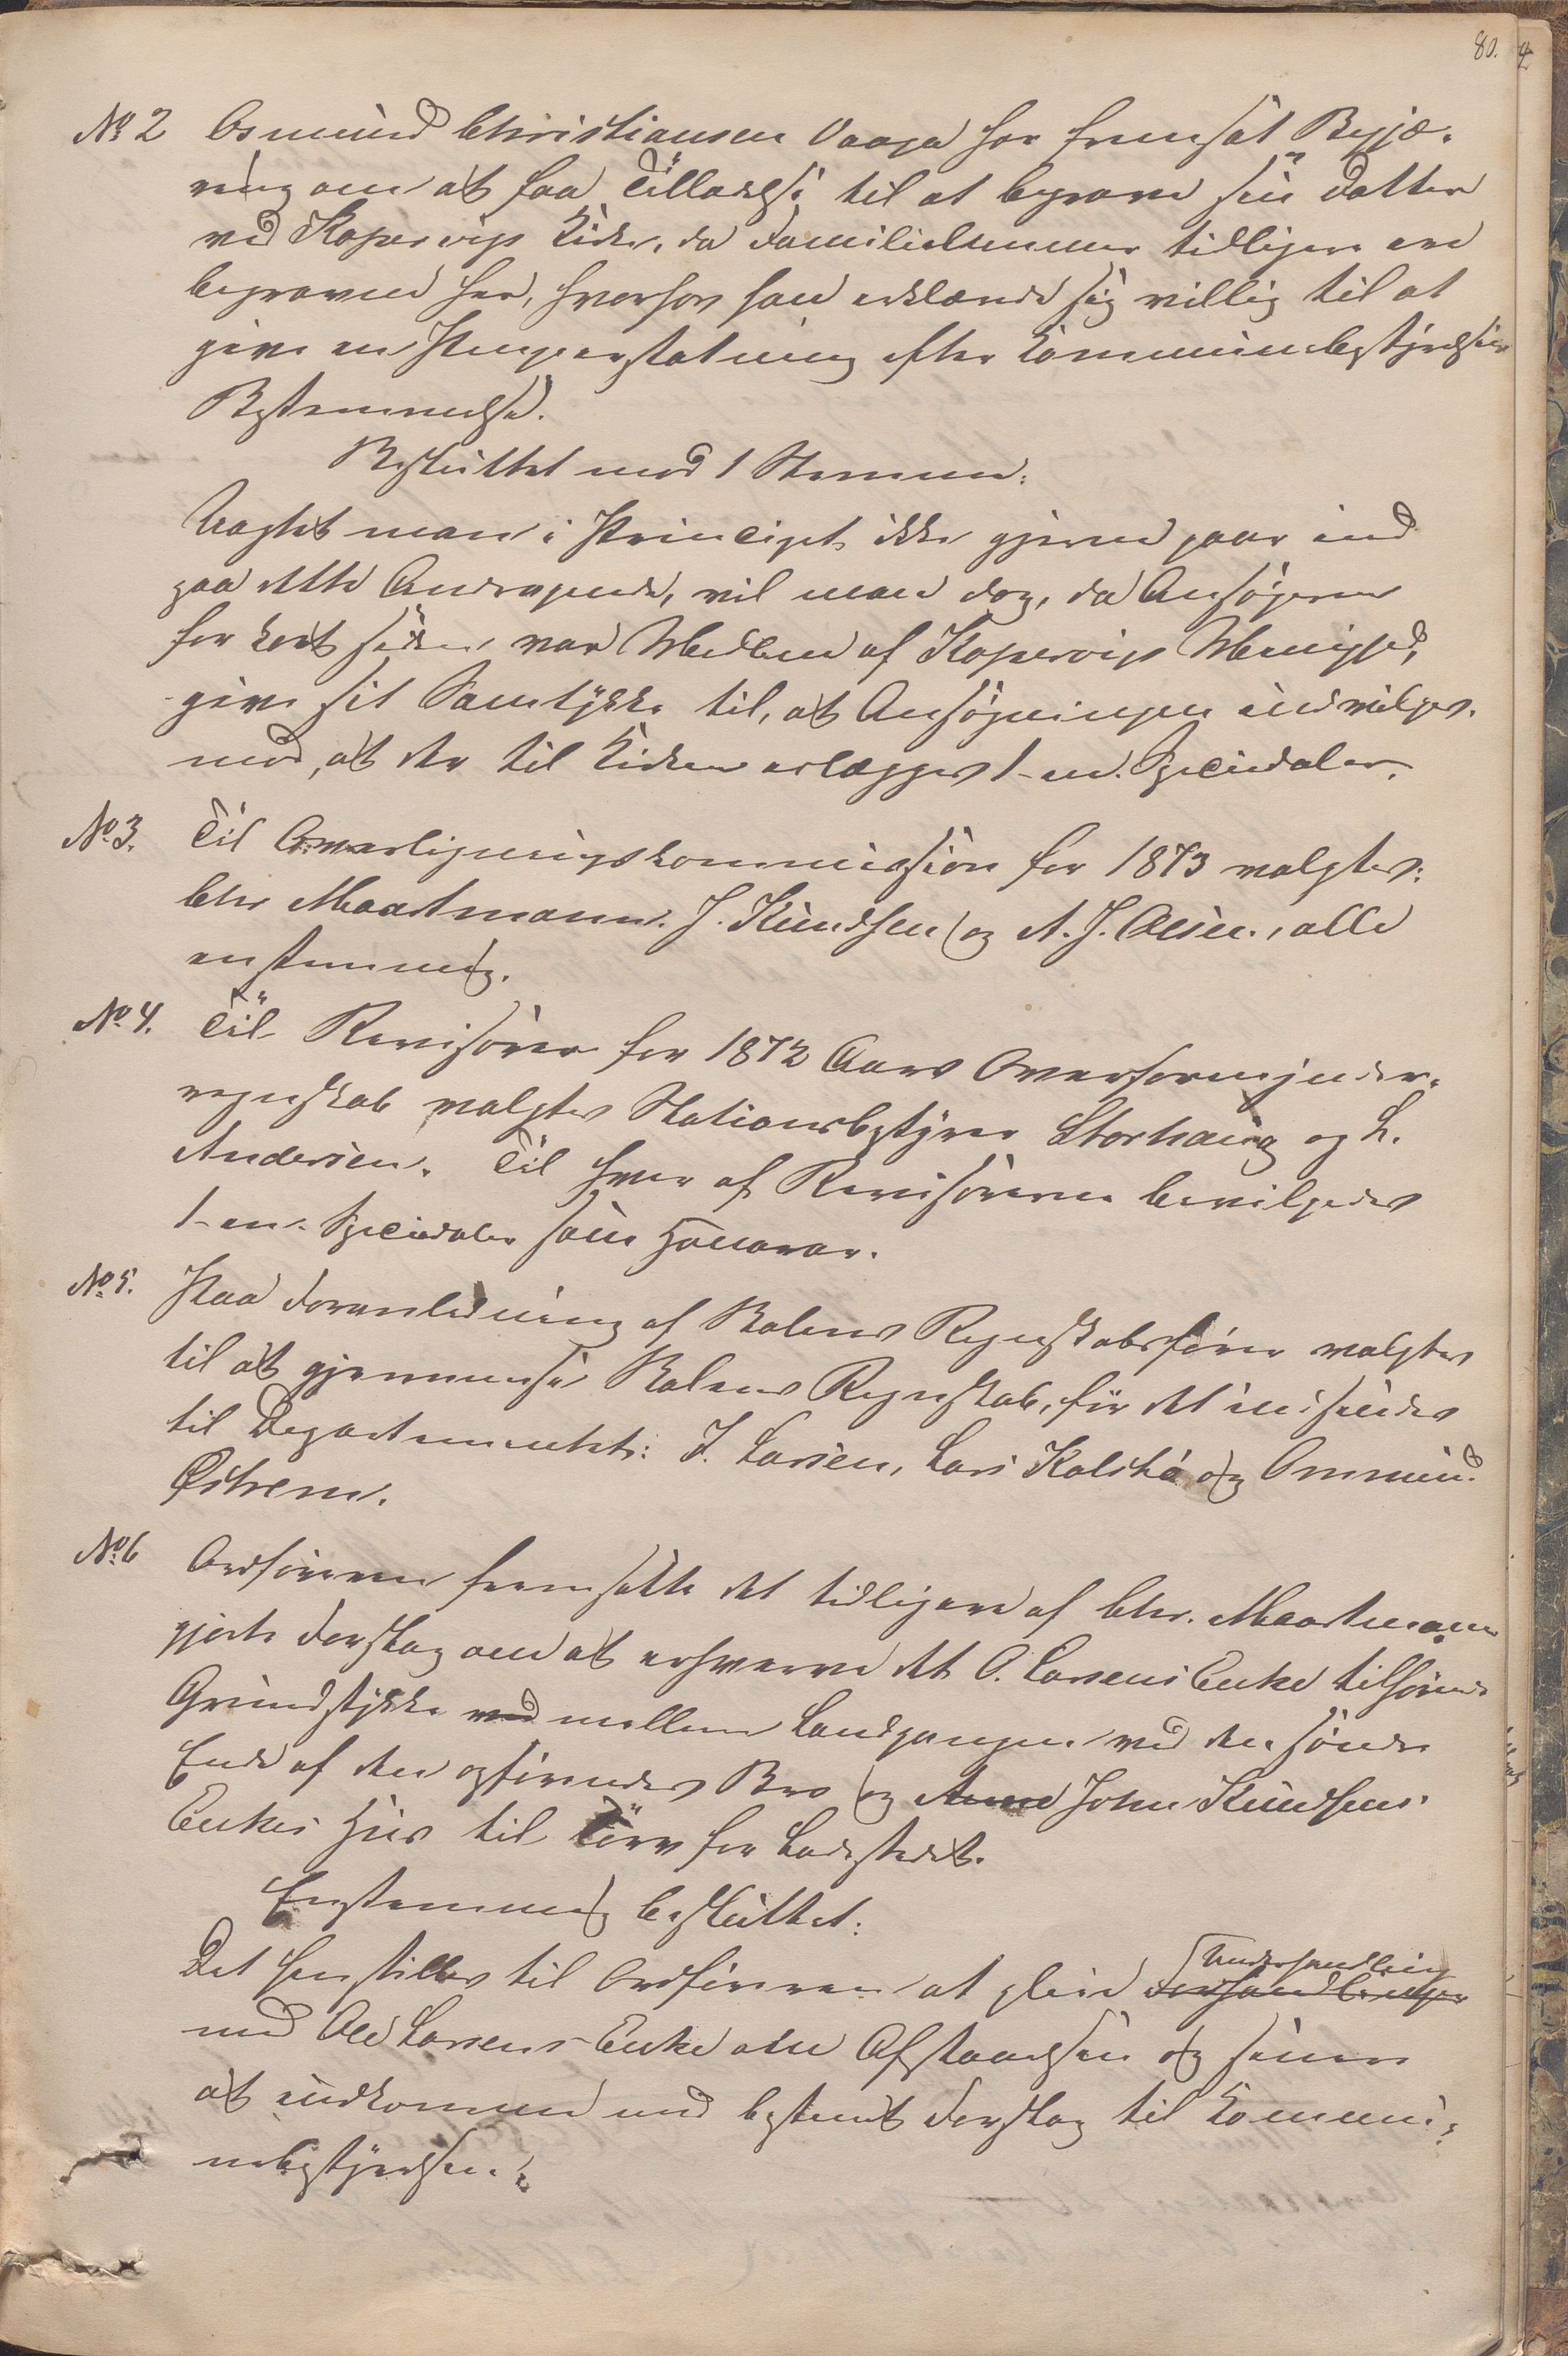 80.
No 2 Osmund Christiansen Vaaga har fremsat Begjæ-
ring om at faa Tilladelse til at begrave sin Datter
ved Kopervigs Kirke, da Familielemmer tidligere ere
begravne her, hvorfor han erklærede sig villig til at
give en Pengeerstatning efter Kommunebestyrelsens
Bestemmelse.
Besluttet mod 1 Stemme:
Uagtet man i Principet ikke gjerne gaar ind
paa dette Andragende, vil man dog, da Ansøgeren
for kort siden var Medlem af Kopervigs Menighed,
give sit Samtykke til, at Ansøgningen indvilges
mod, at der til Kirken erlægges 1 - en Speciedaler.
No 3. Til Overligningskommission for 1873 valgtes:
Chr Maartmann. J. Knudsen og A. J. Olsen., alle
enstemmig.
No 4. Til Revisorer for 1872 Aars Overformynder-
regnskab valgtes Stationsbestyrer Storhaug og L.
Andersen. Til hver af Revisorerne bevilgedes
1 - en Speciedaler som Honorar.
No 5. Paa Foranledning af Kolera Regnskabsfører valgtes
til at gjennemse Kolera Regnskab, før det indsendes
til Departementet: J. Larsen, Lars Kolstø og Ommund
Østrem.
No 6 Ordføreren fremsatte det tidligere af Chr. Maartmann
gjorte Forslag om at erhverve det O. Larsens Enke tilhørende
Grundstykke ved mellem Landgangen ved den søndre
Ende af den opførendes Bro og John Knudsens
Enkes Hus til Torv for Ladestedet.
Enstemmig besluttet:
Det henstilles til Ordføreren at pleie Forhandlinger Underhandling
med Ole Larsens Enke om Afstaaelsen og senere
at indkomme med bestemt Forslag til Kommu-
nebestyrelsen.